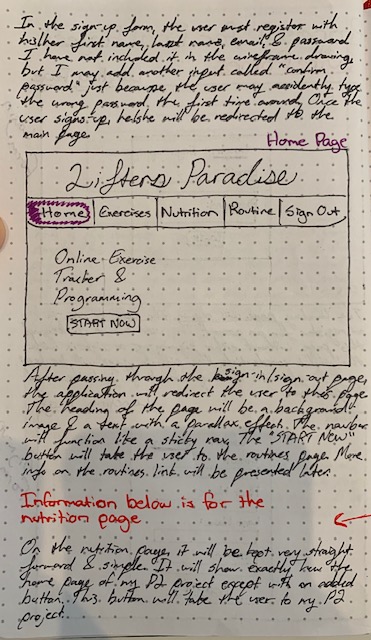 In the sign-up form, the user must register with
his/her first name, last name, email, & password
I have not included it in the wireframe drawing,
but I may add another input called "confirm
password" just because the user may accidently type
the wrong password the first time around. Once the
user signs-up, he/she will be redirected to the
main page
Home Page
Lifters Paradise
Home Exercises Nutrition Routine Sign Out
Online Exercise
Tracker &
Programming
START NOW
After passing through the sign-in/sign-out page,
the application will redirect the user to this page
The heading of the page will be a background
image & a text with a parallax effect. The navbar
will function like a sticky nav. The "START NOW"
button will take the user to the routines page. More
info on the routines link will be presented later.
Information below is for the
nutrition page
On the nutrition page, it will be kept very straight
forward & simple. It will show exactly how the
home page of my P2 project except with an added
button. This button will take the user to my P2
project.